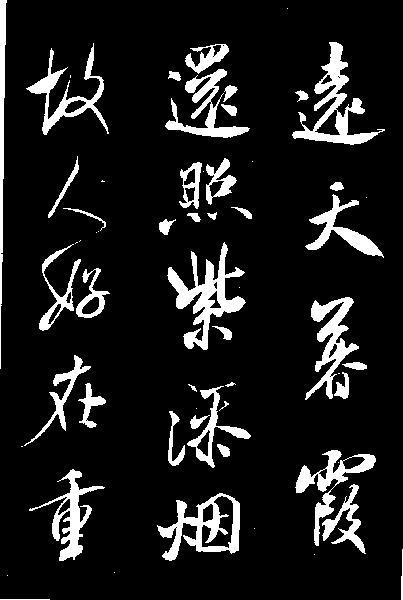 遠天暮霞
還照紫深烟
故人好在重